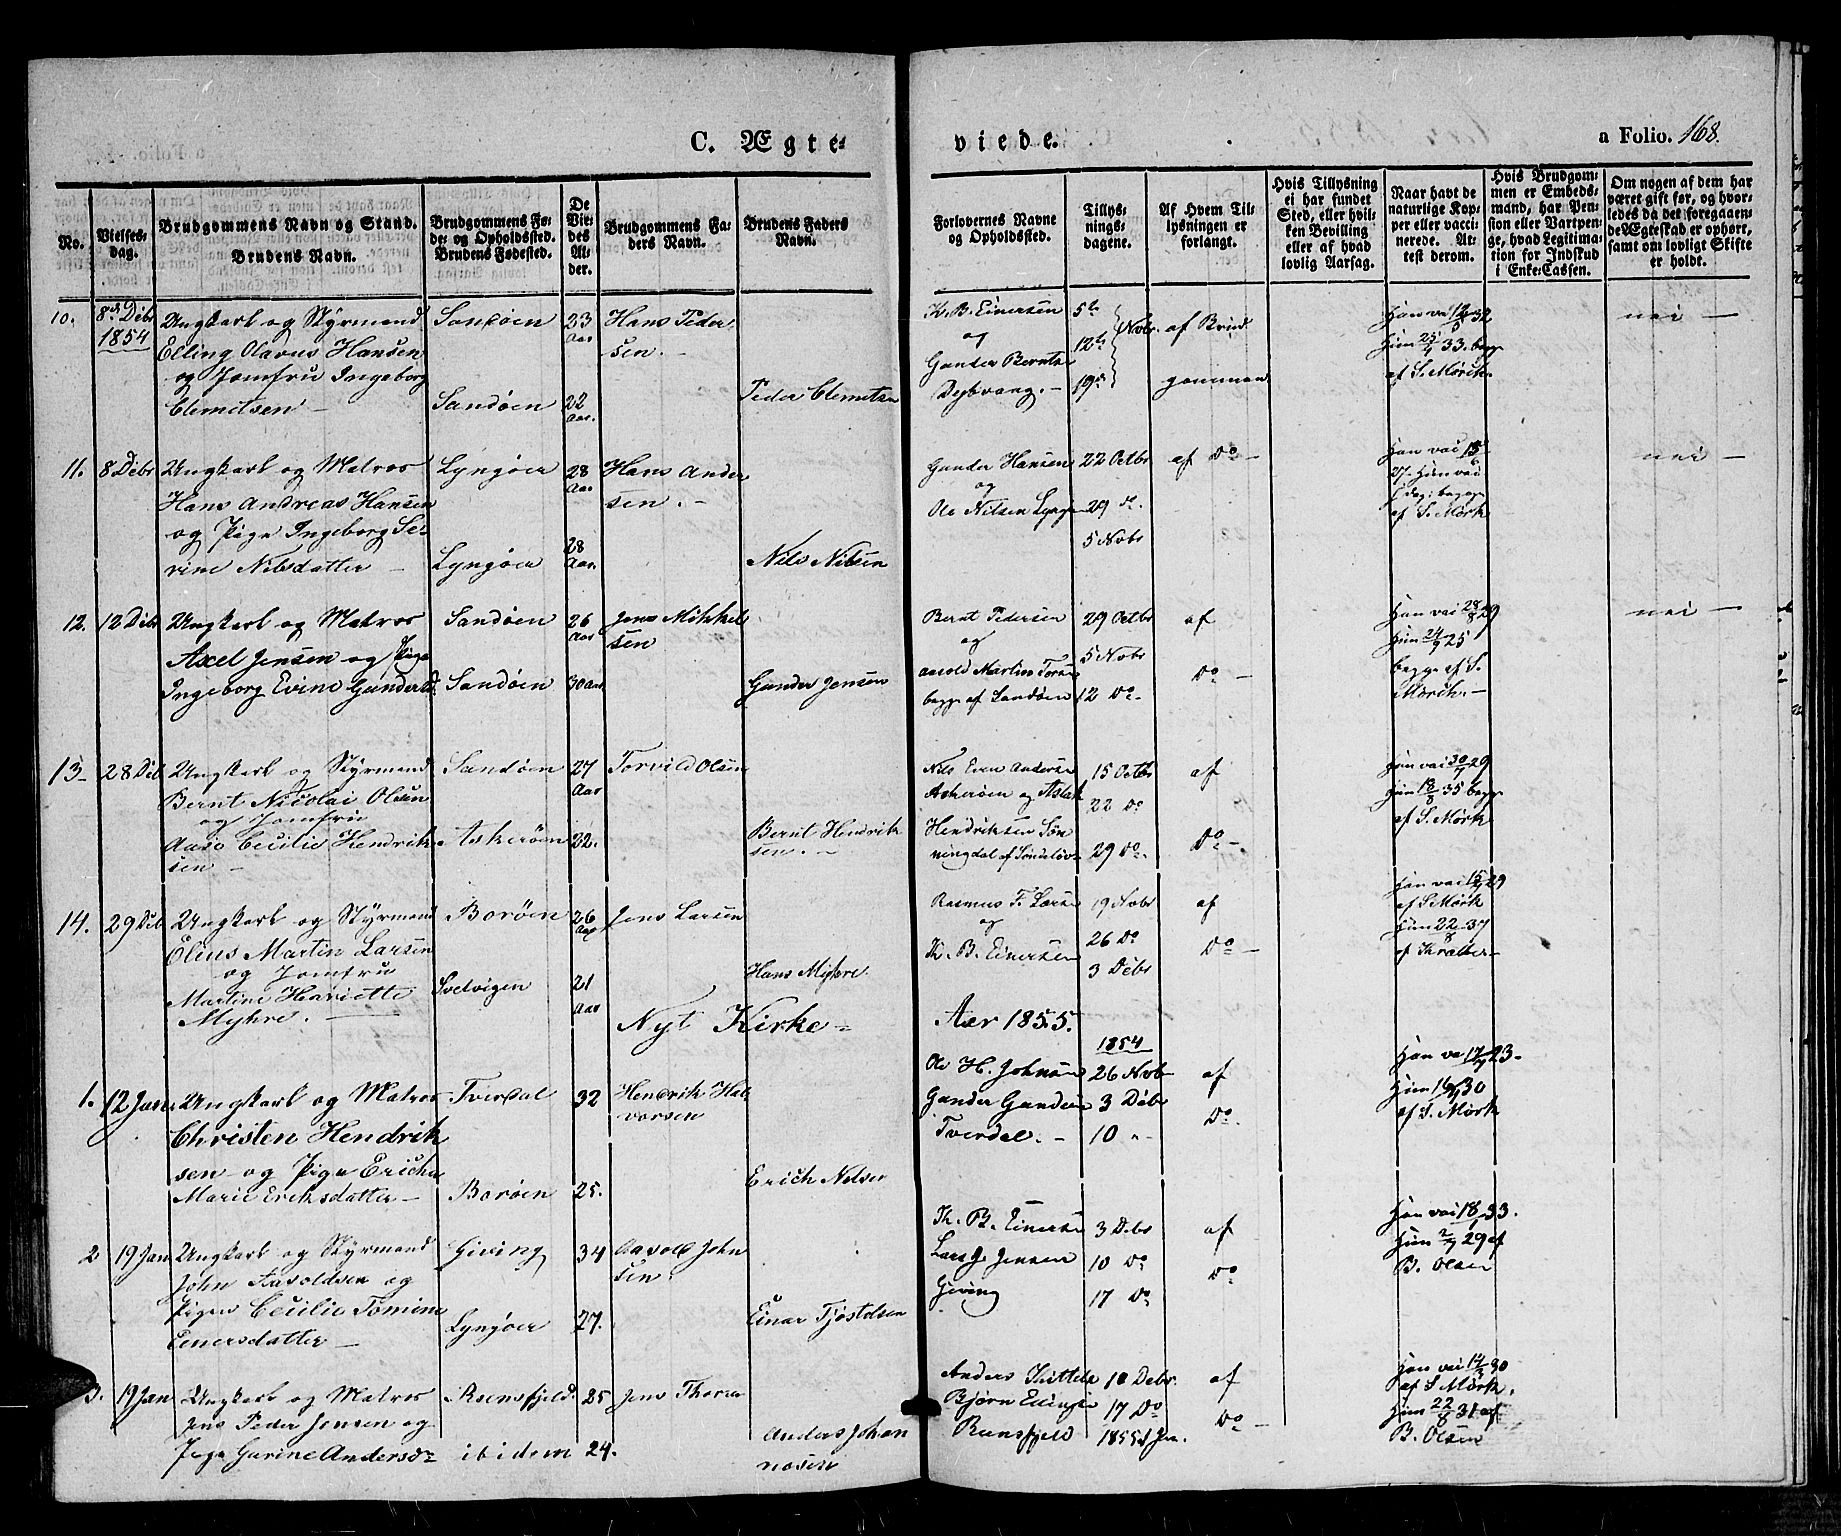 C. Ægte-
viede.
a Folio. 168.
No.
Vielses-
dag.
Brudgommens Navn og Stand.
Brudens Navn.
Brudgommens Fø-
de- og Opholdssted.
Brudens Fødested.
De
Vie-
des
Al-
der.
Brudgommens Fa-
ders Navn.
Brudens Faders
Navn.
Forlovernes Navne
og Opholdssted.
Tillys-
nings-
dagene.
Af Hvem Til-
lysningen er
forlangt.
Hvis Tillysning
ei har fundet
Sted, eller hvil-
ken Bevilling
eller af hvad
lovlig Aarsag.
Naar havt de
naturlige Kop-
per eller vacci-
nerede. At-
test derom.
Hvis Brudgom-
men er Embeds-
mand, har Pen-
sion eller Vartpen-
ge, hvad Legitima-
tion for Indskud
i Enke-Cassen.
Om nogen af dem har
været gift før, og hvor-
ledes da det foregaaen-
de Ægteskab er ophørt,
samt om lovligt Skifte
er holdt.
10.
8de Debr
1854
Ungkarl og Styrmand
Elling Olavus Hansen
og Jomfru Ingeborg
Clemetsen –
Sandøen
Sandøen
23
Aar
22
Aar.
Hans Peder
sen. –
Peder Clemetsen
K. B. Einersen
og
Gunder Berntsen
Dybvaag. –
5te
12te
19de
Novbr.
af Brud
gommen
Han vac 32
Hun 33. begge
af S. Mörch.
nei –
11.
8 Debr
Ungkarl og Matros
Hans Andreas Hansen
og Pige Ingeborg Se-
rine Nilsdatter –
Lyngøer
Lyngøer
28
Aar
28
Aar.
Hans Ander
sen. –
Nils Nilsen
Gunder Hansen
og
Ole Nilsen Lyngøer
22 Octbr
29 do.
5 Novbr
af Do –
Han vac 18
27. Hun vac
i dag; begge
af S. Mörk
nei –
12.
12 Debr
Ungkarl og Matros
Axel Jensen og Pige
Ingeborg Evine Gundersd.
Sandøen
Sandøen
26
Aar
30 Aar
Jens Mikkel
sen
Gunder Jensen
Bernt Pedersen
og
Aarold Martins Torsen
begge af Sandøen
29 Octbr
5 Novbr
12 Do –
af
Do –
Han vac 28/8 29
Hun 24/9 25
begge af S.
Mörch. –
nei –
13 –
28 Deb
Ungkarl og Styrmand
Bernt Nicolai Olsen
og Jomfru
Aase Cecilie Hendrik
sen –
Sandøen
Askerøen
27
Aar
22.
Torvild Olsen
Bernt Hendrik
sen. –
Nils Even Andersen
Askerøen og Aslak
Hendriksen Søn
ningdal af Søndeløv
15 Octbr
22 Do
29 Do.
af
Do –.
Han vac 29
Hun 18/8 35 begge
af S. Mörk
14.
29 Deb
Ungkarl og Styrmand
Elius Martin Larsen
og Jomfru
Martine Henriette
Myhre.
Borøen
Svelvigen
26
Aar
21
Aar
Jens Larsen
Hans Myhre
Rasmus F. Larsen
og
K. B. Einersen
19 Novbr
26 Do
3 Debr
af
Do –
Han vac 29
af S. Mörk
Hun 22/8 37
af Krabbe –
Nyt Kirke –
Aar 1855.
1.
12 Janr
Ungkarl og Matros
Christen Hendrik
sen og Pige Ericha
Marie Eriksdatter –
Tverdal
Borøen
32
25.
Hendrik Hal
vorsen
Erich Nelsen
Ole H. Johnsen
Gunder Gundersen
Tverdal. –
1854
26 Novbr
3 Debr
10 " –
af
Do.
Han va 23 –
Hun 30
af S. Mörk
2
19 Jan
Ungkarl og Styrmand
John Aavoldsen og
Pigen Cecilie Tomine
Einersdatter –
Giving
Lyngøer
34
27.
Aavold John
sen.
Einar Tjøstelsen
Th. B. Einersen
Lars J. Jensen
Giving
3 Debr
10 Do
17 Do
af
Do
Han vac 33.
Hun 2/7 29 af
B. Olsen
3.
19 Jan
Ungkarl og Matros
Jens Peder Jensen og
Pige Gurine Andersd.
Ronsfjeld.
ibidem
25
24.
Jens Thorsen
Anders Johan
nesen
Anders Kittelsen
Bjørn Ellingsen
Ronsfjeld
10 Debr.
17 Do
1855 1 Jan.
af
Do –
Han vac 30
af S. Mörk.
Hun 22/8 31 af
B. Olsen